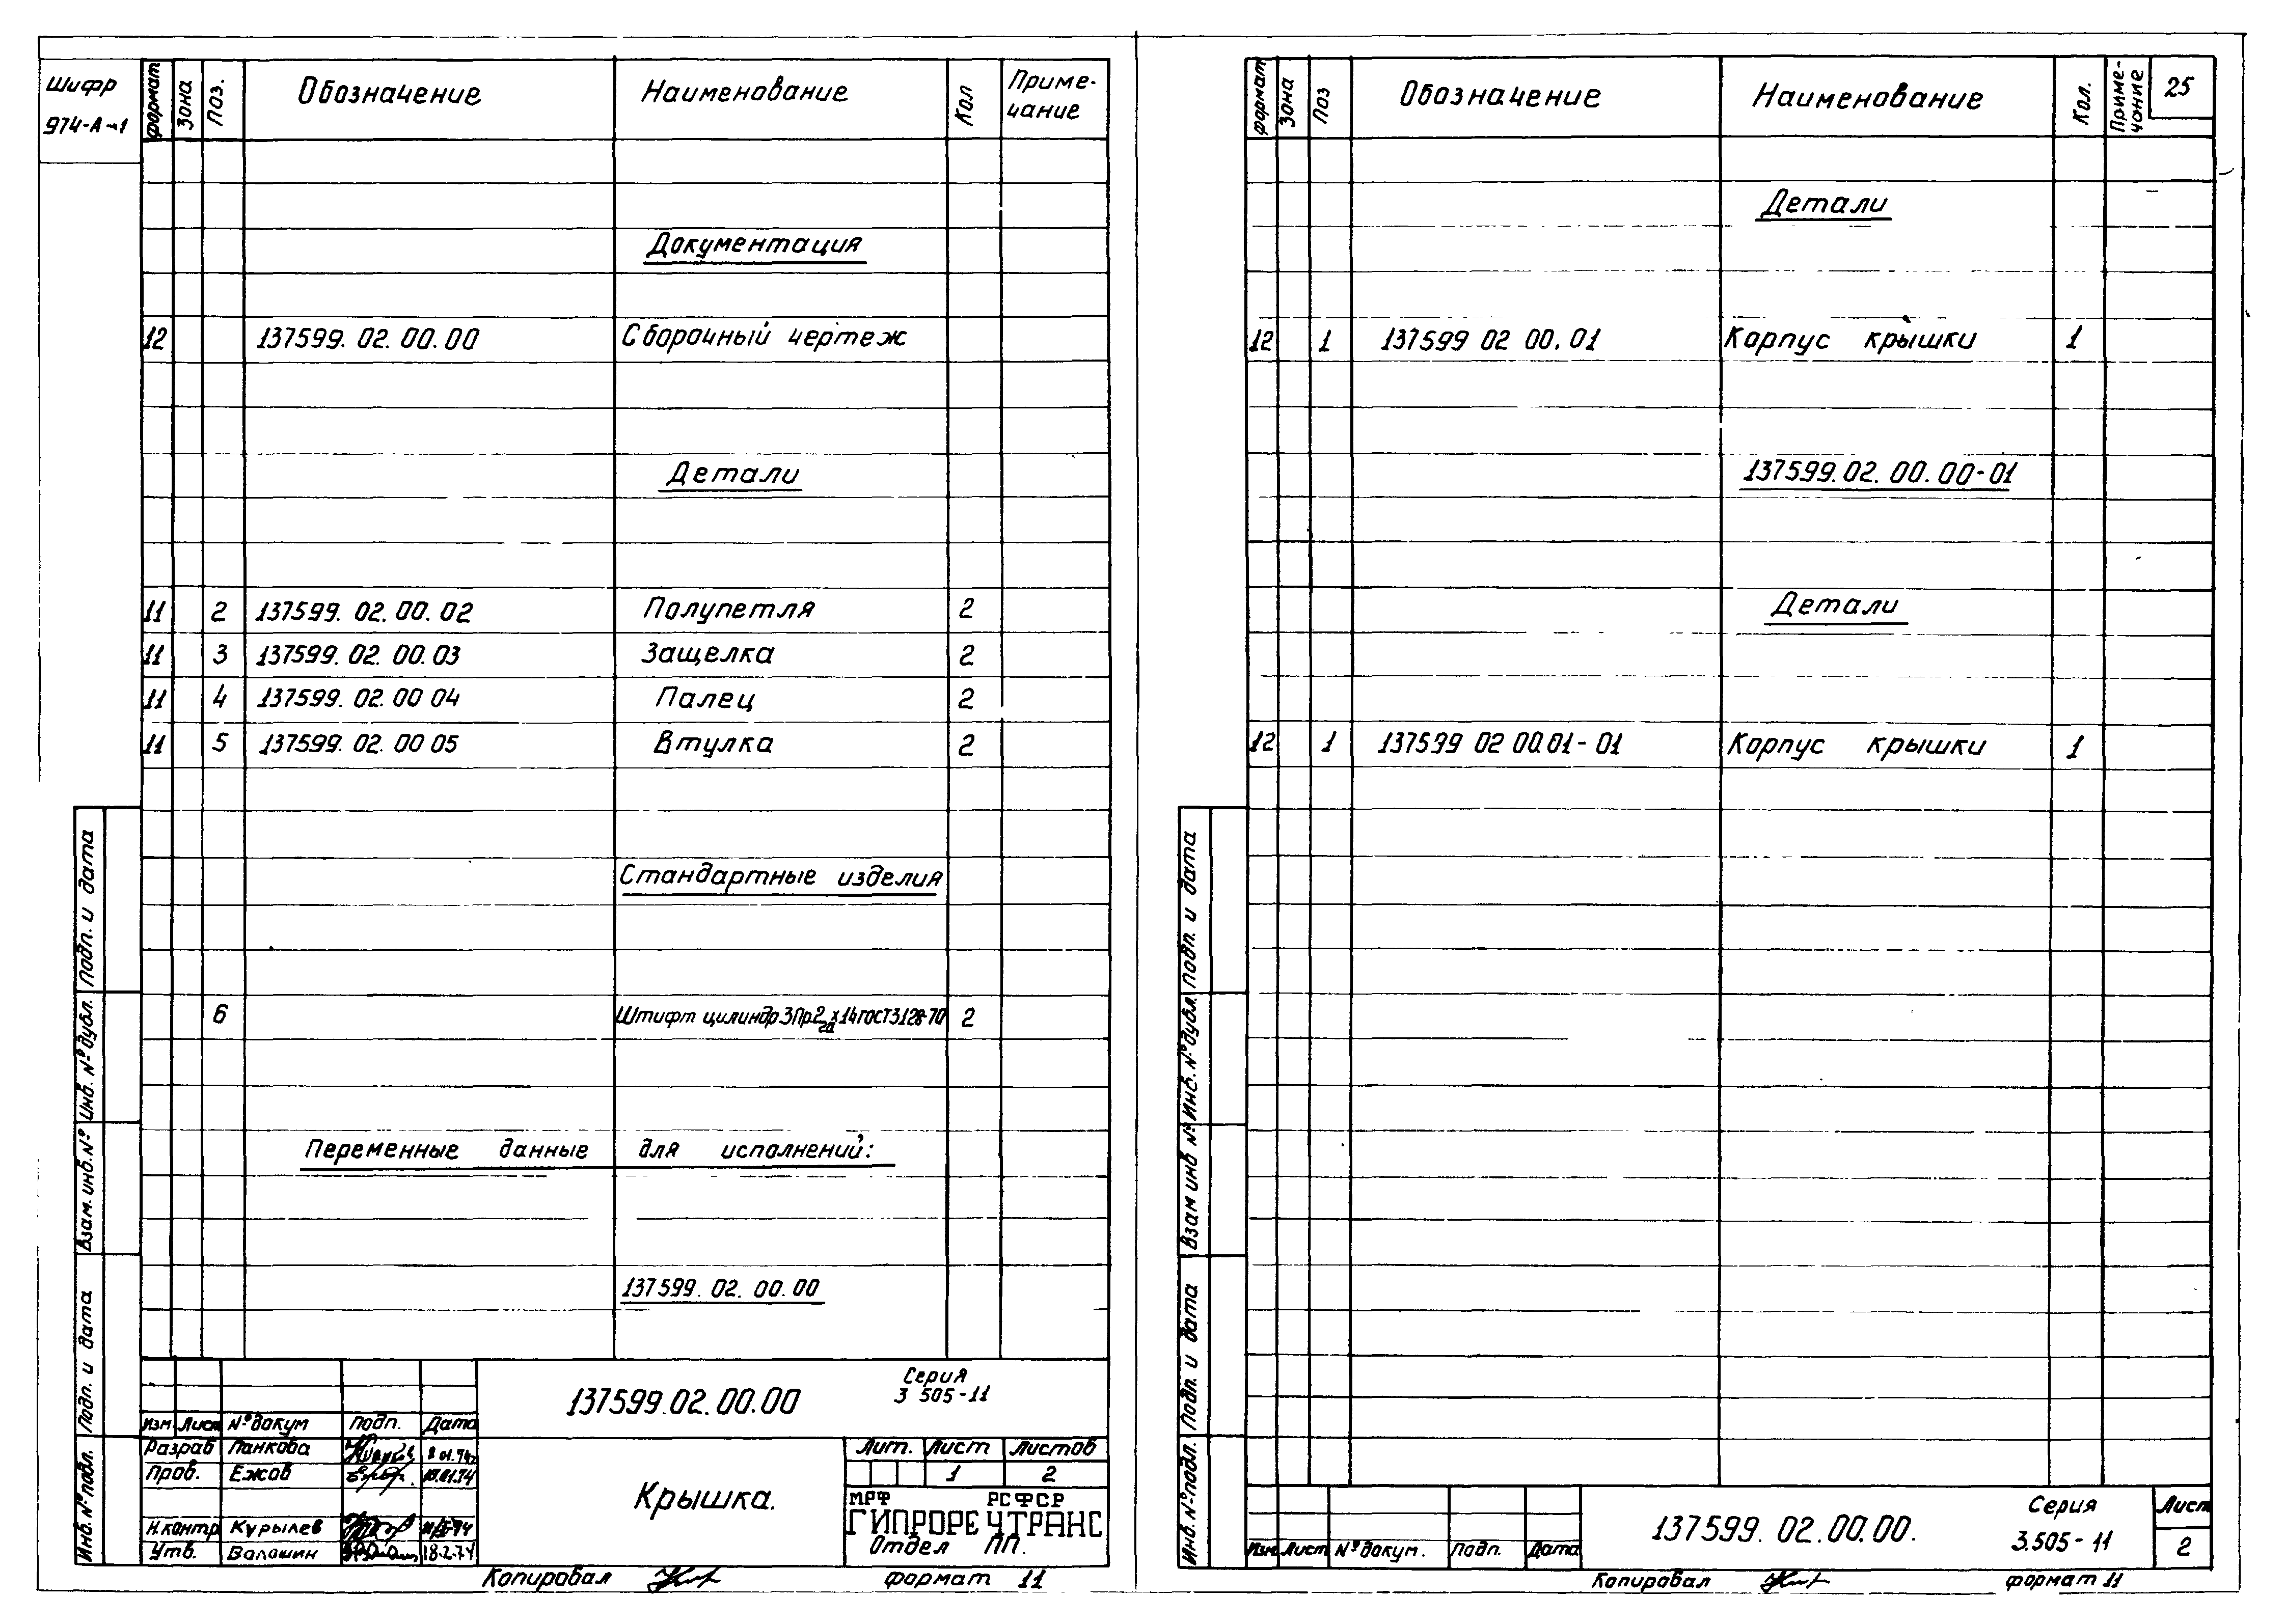 Шифр
974-А-1
формат Зона Поз. Обозначение Наименование Кол Приме-
чание
Документация
12 137599. 02. 00. 00 Сборочный чертеж
Детали
11 2 137599. 02. 00. 02 Полупетля 2
11 3 137599. 02. 00. 03 Защелка 2
11 4 137599. 02. 00 04 Палец 2
11 5 137599. 02. 00 05 Втулка 2
Стандартные изделия
6 Штифт цилиндр 3Пр2 2а х14 ГОСТ 3128-70 2
Переменные данные для исполнений:
137599. 02. 00. 00
Подп. и дата
Инв. № дубл.
Взам. инв. №
Подп. и дата
Инв. № подл.
137599.02.00.00 Серия
3 505-11
Изм Лист № докум Подп. Дата
Разраб Панкова 8 01.74г
Пров. Ежов
Н.контр Курылев
Утв. Волошин 18-2-74
Крышка.
Лит. Лист Листов
1 2
МРФ РСФСР
ГИПРОРЕЧТРАНС
Отдел ПП.
Копировал формат 11
формат Зона Поз Обозначение Наименование Кол. Приме-
чание
25
Детали
12 1 137599 02 00.01 Корпус крышки 1
137599.02. 00. 00-01
Детали
12 1 137599 02 00.01-01 Корпус крышки 1
Подп. и дата
Инв. № дубл.
Взам инв №
Подп. и дата
Инв. № подл.
Изм Лист № докум. Подп. Дата
137599. 02. 00. 00.
Серия
3.505-11
Лист
2
Копировал формат 11